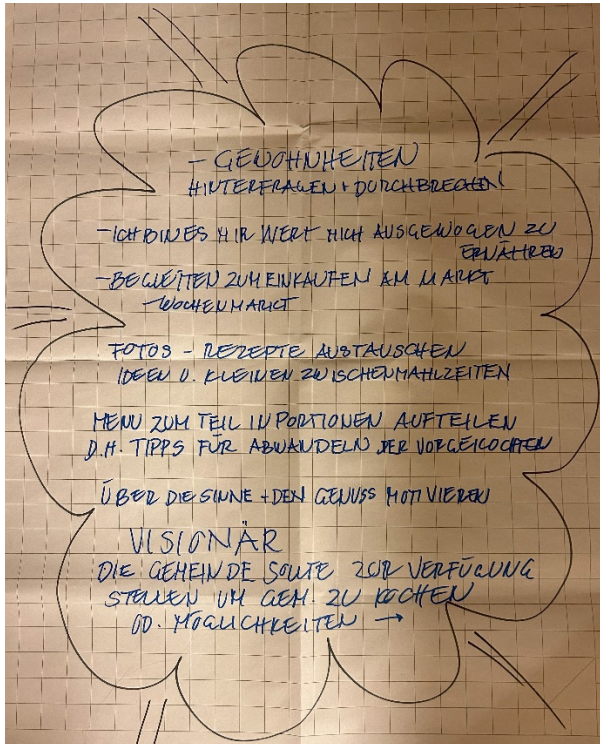 - GEWOHNHEITEN
HINTERFRAGEN + DURCHBRECHEN!
- ICH BIN ES MIR WERT MICH AUSGEWOGEN ZU
ERNÄHREN
- BEGLEITEN ZUM EINKAUFEN AM MARKT
- WOCHENMARKT
FOTOS - REZEPTE AUSTAUSCHEN
IDEEN V. KLEINEN ZWISCHENMAHLZEITEN
MENU ZUM TEIL IN PORTIONEN AUFTEILEN
D.H. TIPPS FÜR ABWANDELN DER VORGEKOCHEN
ÜBER DIE SINNE + DEN GENUSS MOTIVIEREN
VISIONÄR
DIE GEMEINDE SOLLTE ZUR VERFÜGUNG
STELLEN UM GEM. ZU KOCHEN
OD. MÖGLICHKEITEN →